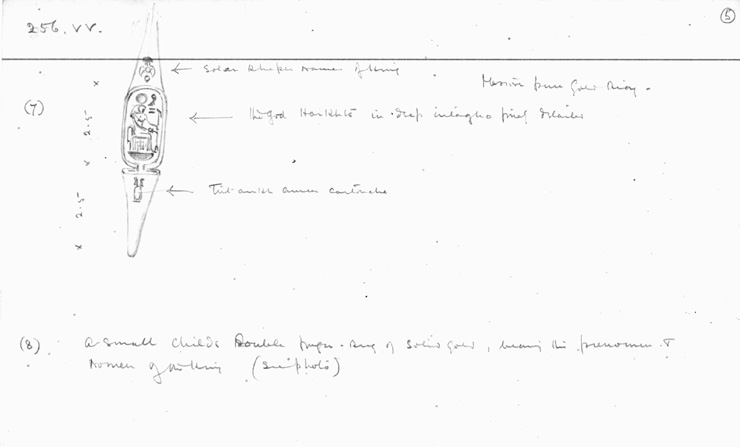 5
256. VV.
Solar Kheper Name of King
Massive pure Gold Ring.
(7)
The God Horkhte in deep intaglio finely detailed
2.5
2.5
Tut-ankh-amen cartouche
(8) A small childs Double finger-ring of solid gold, bearing the prenomen &
Nomen of the King (See photo)